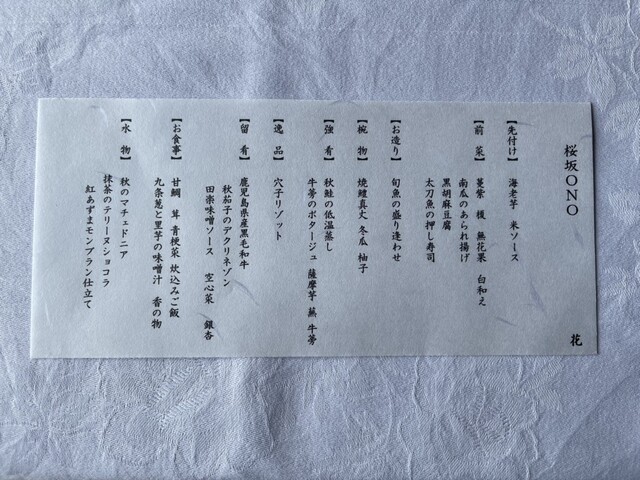 桜坂ONO 花
【先付け】 海老芋 米ソース
【前菜】 蔓紫 榎 無花果 白和え
南瓜のあられ揚げ
黒胡麻豆腐
太刀魚の押し寿司
【お造り】 旬魚の盛り逢わせ
【椀物】 焼鱧真丈 冬瓜 柚子
【強肴】 秋鮭の低温蒸し
牛蒡のポタージュ 薩摩芋 蕪 牛蒡
【逸品】 穴子リゾット
【留肴】 鹿児島県産黒毛和牛
秋茄子のデクリネゾン
田楽味噌ソース 空心菜 銀杏
【お食事】 甘鯛 茸 青梗菜 炊込みご飯
九条葱と里芋の味噌汁 香の物
【水物】 秋のマチェドニア
抹茶のテリーヌショコラ
紅あずまモンブラン仕立て